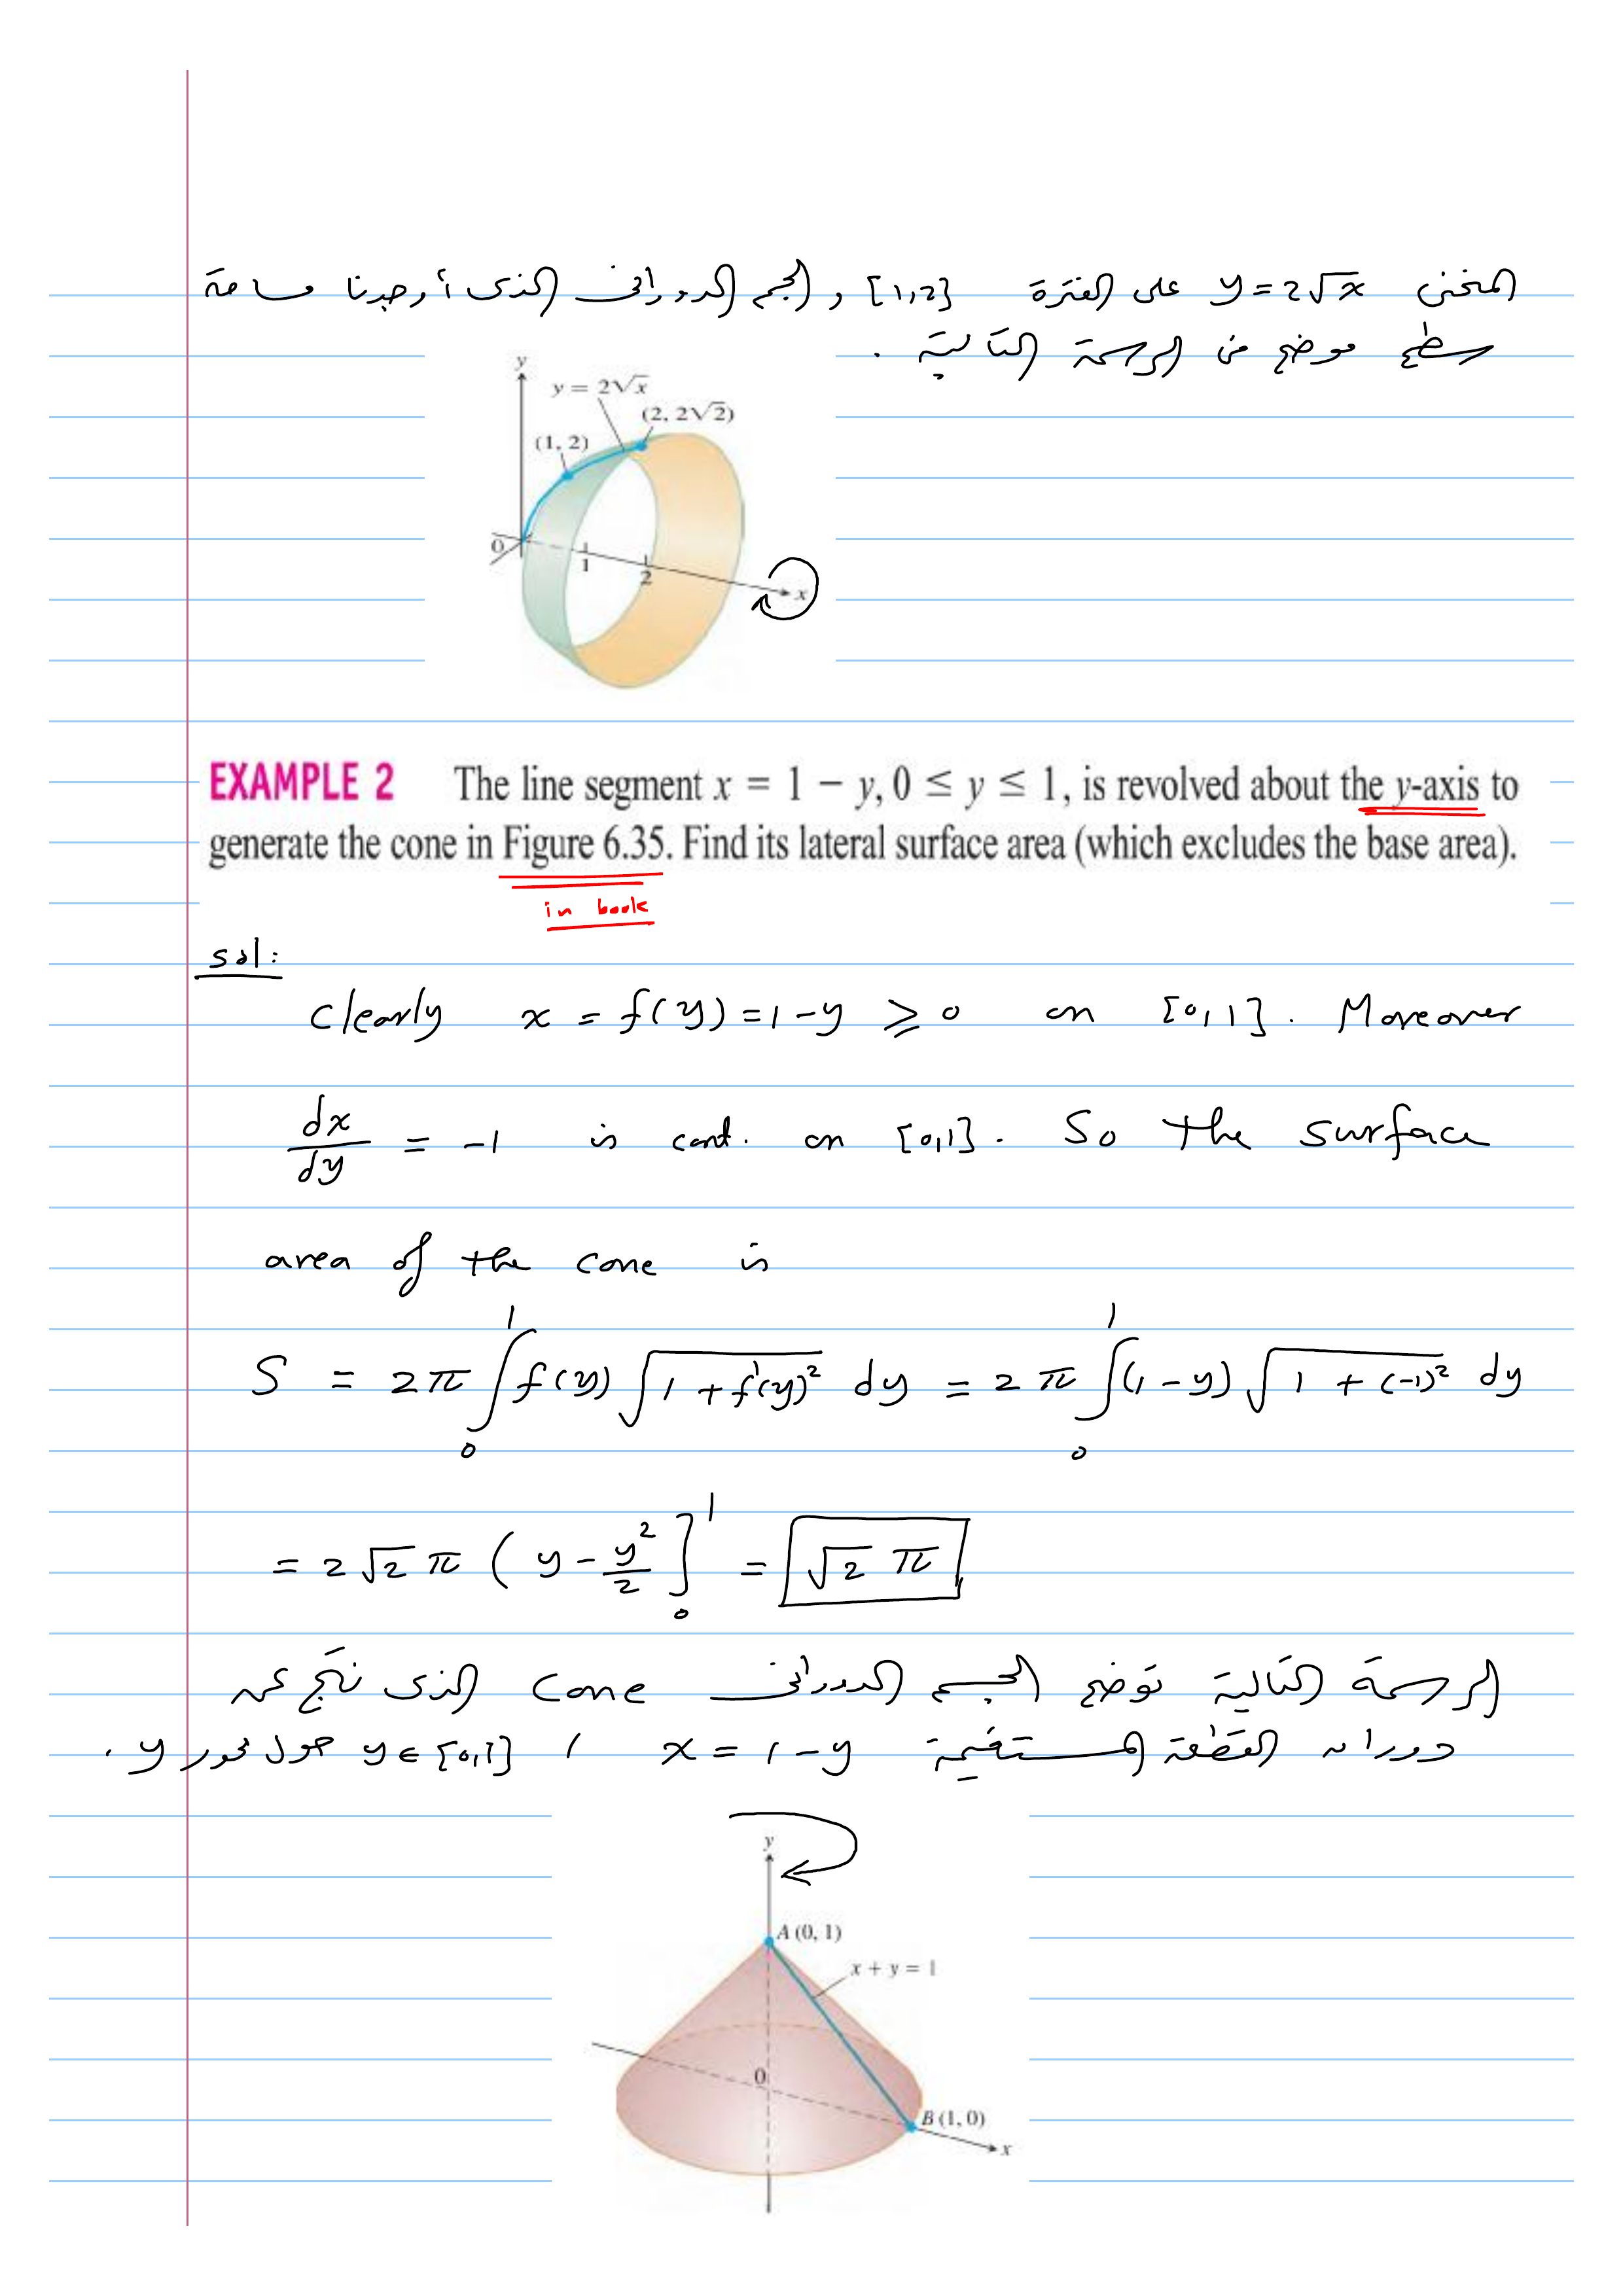 المنحنى y = 2√x على الفترة [1,2] , الجسم الدورانى الذى أوجدنا مساحة
سطحه موضح فى الرسمة التالية .
y
y = 2√x
(2, 2√2)
(1, 2)
0
1
2
x
EXAMPLE 2 The line segment x = 1 − y, 0 ≤ y ≤ 1, is revolved about the y-axis to
generate the cone in Figure 6.35. Find its lateral surface area (which excludes the base area).
in book
sol:
Clearly x = f(y) = 1 - y ⩾ 0 on [0,1]. Moreover
dx/dy = -1 is cont. on [0,1]. So the surface
area of the cone is
S = 2π ∫₀¹ f(y) √(1 + f'(y)²) dy = 2π ∫₀¹ (1 - y) √(1 + (-1)²) dy
= 2√2 π ( y - y²/2 ]₀¹ = √2 π
الرسمة التالية توضح الجسم الدورانى cone الذى نتج عن
دوران القطعة المستقيمة x = 1 - y , y ∈ [0,1] حول محور y .
y
A (0, 1)
x + y = 1
0
B (1, 0)
x